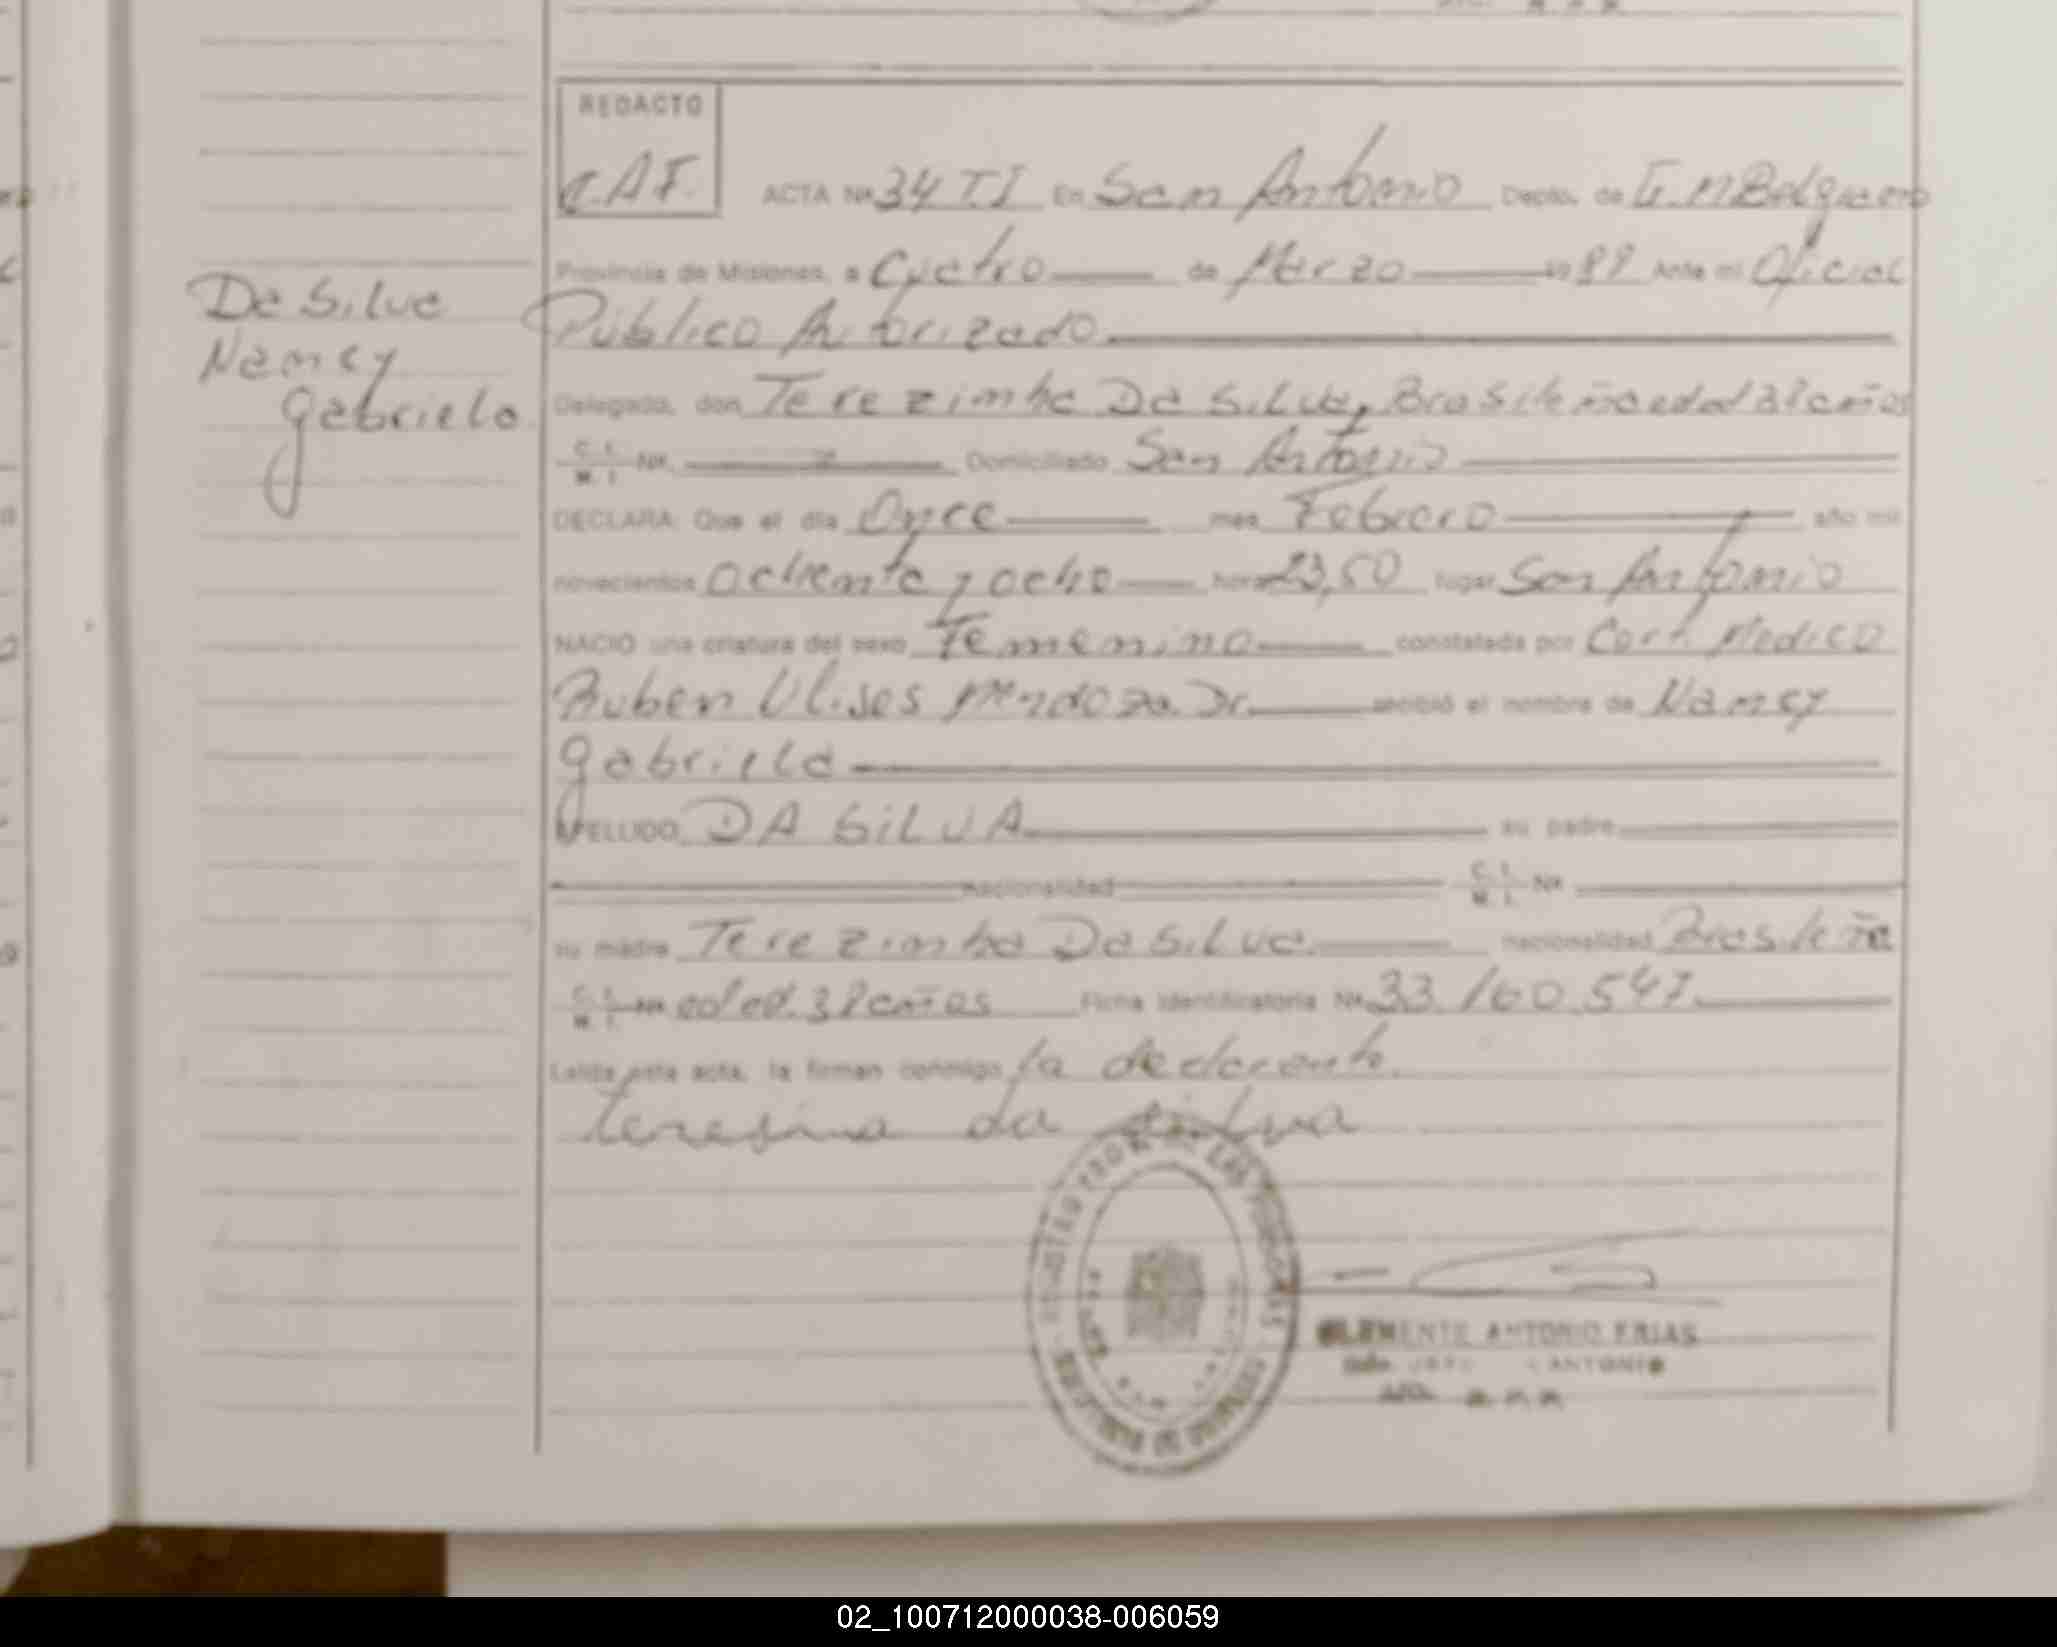 REDACTO
C.A.F.
ACTA Nº 34 T.I En San Antonio Depto. de G. M Belgrano
Provincia de Misiones, a Cuatro de Marzo 19 89 Ante mi Oficial
Publico Autorizado
Da Silva
Nancy
Gabriela
Delegado, don Terezinha Da Silva, Brasileña edad 38 años
C. I.
M. I. Nº Domiciliado San Antonio
DECLARA: Que el día Once mes Febrero año mil
novecientos ochenta y ocho hora 23,50 lugar San Antonio
NACIO una criatura del sexo Femenino constatada por Cert. Medico
Ruben Ulises Mendoza. Dr. recibió el nombre de Nancy
Gabriela
APELLIDO DA SILVA su padre
nacionalidad C. I.
M. I. Nº
su madre Terezinha Da Silva. nacionalidad Brasileña
C. I.
M. I. Nº edad. 38 años Ficha Identificatoria Nº 33.160.547.
Leída esta acta, la firman conmigo la declarante.
teresina da silva
CLEMENTE ANTONIO FRIAS
ANTONIO
02_100712000038-006059